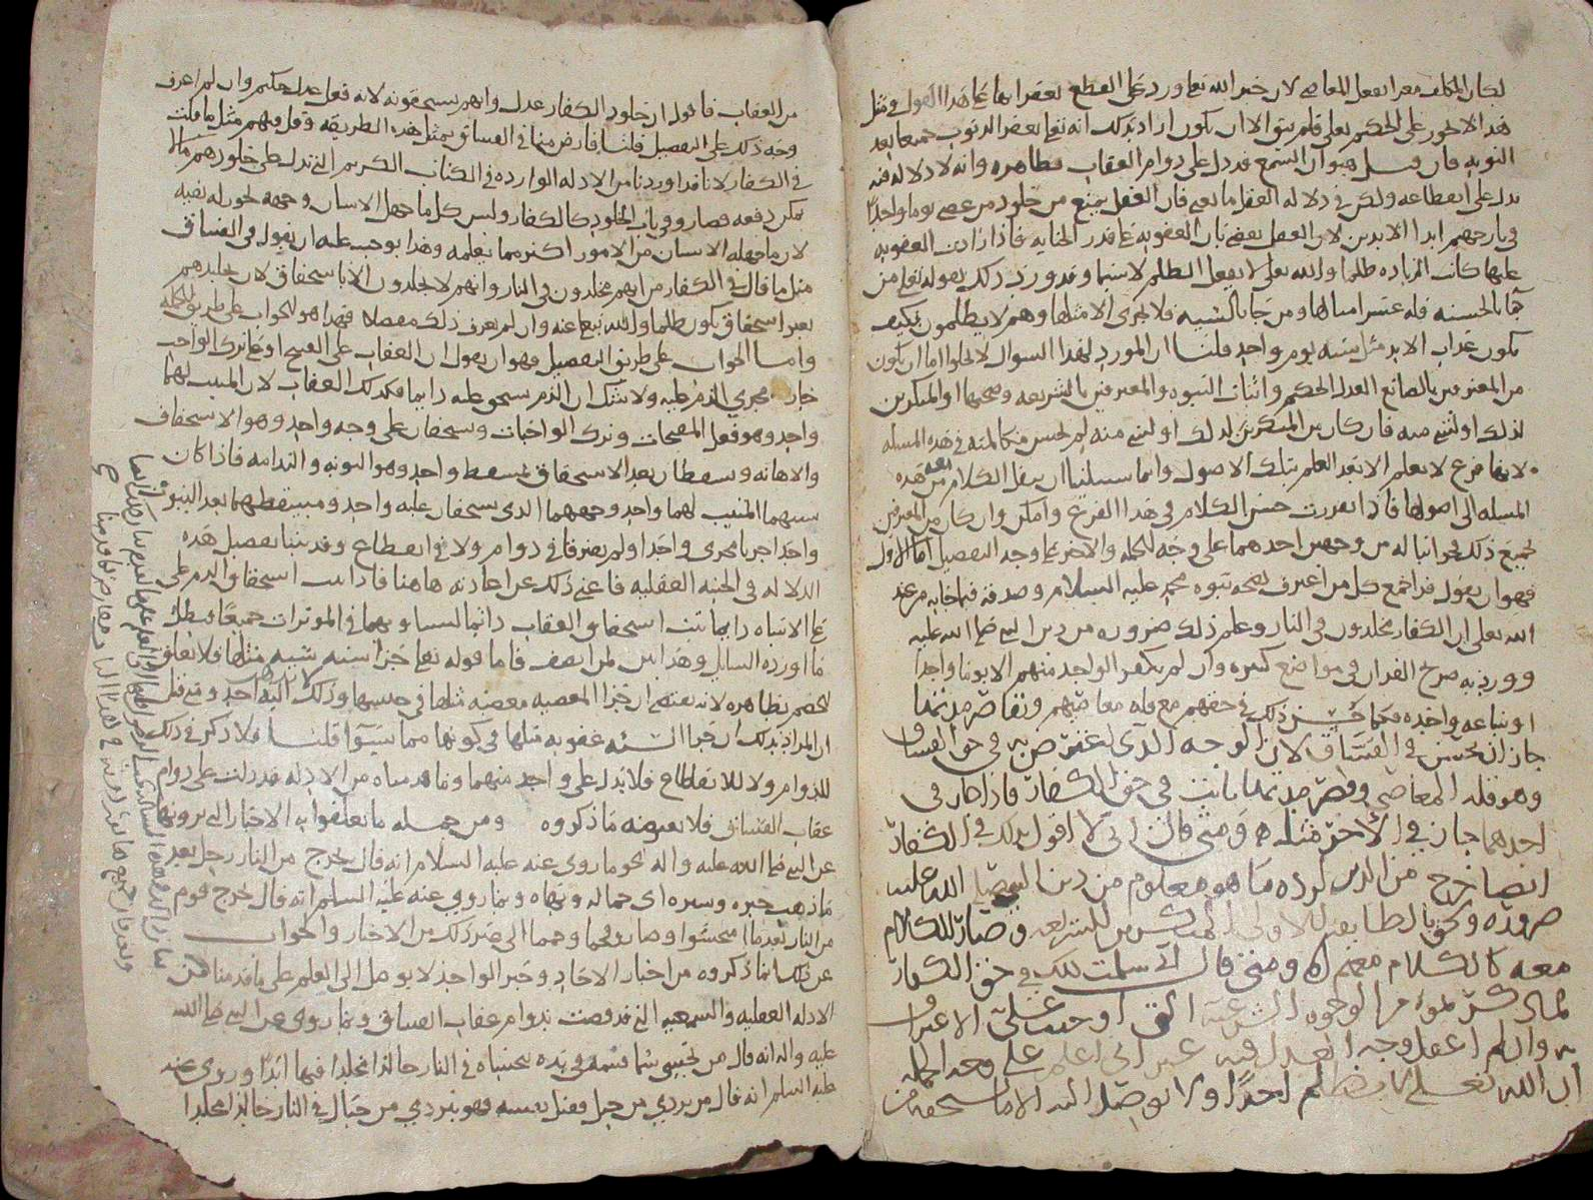 لكان المكلف مغرا بفعل المعاصي لان خبر الله تعالى ورد على القطع بغفرانها على هذا القول ومثل
هذا لا يجوز على الحكيم تعالى فلم يبق الا ان يكون اراد بذلك انه تعالى يغفر الذنوب جميعا بعد
التوبه فان قيل هبوا ان السمع قد دل على دوام العقاب بظاهره وانه لا دلاله فيه
يدل على انقطاعه ولكن في دلاله العقل ما يمنع فان العقل يمنع من خلود من عصى يوما واحدا
في نار جهنم ابدا الابدين لان العقل يقضي بان العقوبه على قدر الجنايه فاذا زادت العقوبه
عليها كانت الزياده ظلما والله تعالى لا يفعل الظلم لا سيما وقد ورد ذلك بقوله تعالى من
جا بالحسنه فله عشر امثالها ومن جا بالسيه فلا يجزى الا مثلها وهم لا يظلمون فكيف
يكون عذاب الابد مثل سيه يوم واحد قلنا ان المورد لهذا السوال لا يخلوا اما ان يكون
من المعترفين بالصانع العدل الحكيم واثبات النبوه والمعترفين بالشريعه وصحتها او المنكرين
لذلك او لشي منه فان كان من المنكرين لذلك او لشي منه لم يحسن مكالمته في هذه المسله
لانها فرع لا يعلم الا بعد العلم بتلك الاصول وانما سبيلنا ان ننقل الكلام معه من هذه
المسله الى اصولها فاذا تقررت حسن الكلام في هذا الفرع وامكن وان كان من المعترفين
بجميع ذلك فجوابنا له من وجهين احدهما على وجه الجمله والاخر على وجه التفصيل اما الاول
فهو ان يقول قد اجمع كل من اعترف بصحه نبوه محمد عليه السلام وصدقه فيما جا به من عند
الله تعالى ان الكفار مخلدون في النار وعلم ذلك ضروره من دين النبي صلى الله عليه
وورد به صريح القران في مواضع كثيره وان لم يكفر الواحد منهم الا يوما واحدا
او ساعه واحده فكما حسن ذلك في حقهم مع قله معاصيهم وتقاصر مدتها
جاز ان يحسن في الفساق لان الوجه الذي اعترض به في حق الفساق
وهو قله المعاصي وقصر مدتها ثابت في حق الكفار فاذا جاز في
احدهما جاز في الاخر مثله ومتى قال اني لا اقول بذلك في الكفار
ايضا خرج من الدين لرده ما هو معلوم من دين النبي صلى الله عليه
ضروره ولحق بالطايفه الاولى المنكرين للشريعه وصار الكلام
معه كالكلام معهم ومتى قال اني سلمت ذلك في حق الكفار
لما ذكرتموه من الوجوه الشرعيه التي اوجبت على الاعتراف
به وان لم اعقل وجه العدل فيه غير اني اعلم على وجه الجمله
ان الله تعالى لا يظلم احدا ولا يوصل اليه الا ما يستحقه من
من العقاب فاقول ان خلود الكفار عدل وانهم يستحقونه لانه فعل عدل حكيم وان لم اعرف
وجه ذلك على التفصيل قلنا فارض منا في الفساق بمثل هذه الطريقه وقل فيهم مثل ما قلت
في الكفار لانا قد اوردنا من الادله الوارده في الكتاب الكريم التي تدل على خلودهم ما لا
يمكن دفعه فصاروا في باب الخلود كالكفار وليس كل ما جهل الانسان وجهه يجوز له نفيه
لان ما جهله الانسان من الامور اكثر مما يعلمه وهذا يوجب عليه ان يقول في الفساق
مثل ما قال في الكفار من انهم مخلدون في النار وانهم لا يخلدون الا باستحقاق لان تخليدهم
بغير استحقاق يكون ظلما والله يتعالى عنه وان لم يعرف ذلك مفصلا فهذا هو الجواب على طريق الجمله
واما الجواب على طريق التفصيل فهو ان يقول ان العقاب على القبيح او على ترك الواجب
جار مجرى الذم عليه ولا شك ان الذم يستحق عليه دايما فكذلك العقاب لان المثبت لهما
واحد وهو فعل المقبحات وترك الواجبات ويستحقان على وجه واحد وهو الاستحقاق
والاهانه ويسقطان بعد الاستحقاق بمسقط واحد وهو التوبه والندامه فاذا كان
سببهما المثبت لهما واحد ووجههما الذي يستحقان عليه واحد ومسقطهما بعد الثبوت
واحدا جريا مجرى واحدا ولم يفترقا في دوام ولا في انقطاع وقد بينا تفصيل هذه
الدلاله في الجنبه العقليه فاغنى ذلك عن اعادته هاهنا فاذا ثبت استحقاق الذم على
على الاساه دايما ثبت استحقاق العقاب دايما لتساويهما في الموثرات جميعا فبطل
ما اورده السايل وهذا بين لمن انصف فاما قوله تعالى جزا سيه سيه مثلها فلا تعلق
للخصم بظاهره لانه يقتضي ان جزا المعصيه معصيه مثلها في جنسها وذلك لا يقوله احد ومتى قيل
ان المراد بذلك ان جزا السيه عقوبه مثلها في كونها مما يسوا قلنا فلا ذكر في ذلك
للدوام ولا للانقطاع فلا يدل على واحد منهما وما قدمناه من الادله قد دلت على دوام
عقاب الفساق فلا يعترضه ما ذكروه ومن جمله ما تعلقوا به الاخبار التي يروونها
عن النبي صلى الله عليه واله نحو ما روي عنه عليه السلام انه قال يخرج من النار رجل بعد
ما ذهب حبره وسبره اي جماله وبهاه وبما روي عنه عليه السلم انه قال يخرج قوم
من النار بعد ما امتحشوا وصاروا فحما وحمما الى غير ذلك من الاخبار والجواب
عن ذلك ان ما ذكروه من اخبار الاحاد وخبر الواحد لا يوصل الى العلم على ما قدمنا
الادله العقليه والسمعيه التي قد قضت بدوام عقاب الفساق وبما روي عن النبي صلى الله
عليه واله انه قال من تحسى سما فسمه في يده يتحساه في النار خالدا مخلدا فيها ابدا وروي عنه
عليه السلم انه قال من تردى من جبل فقتل نفسه فهو يتردى من جبال في النار خالدا مخلدا